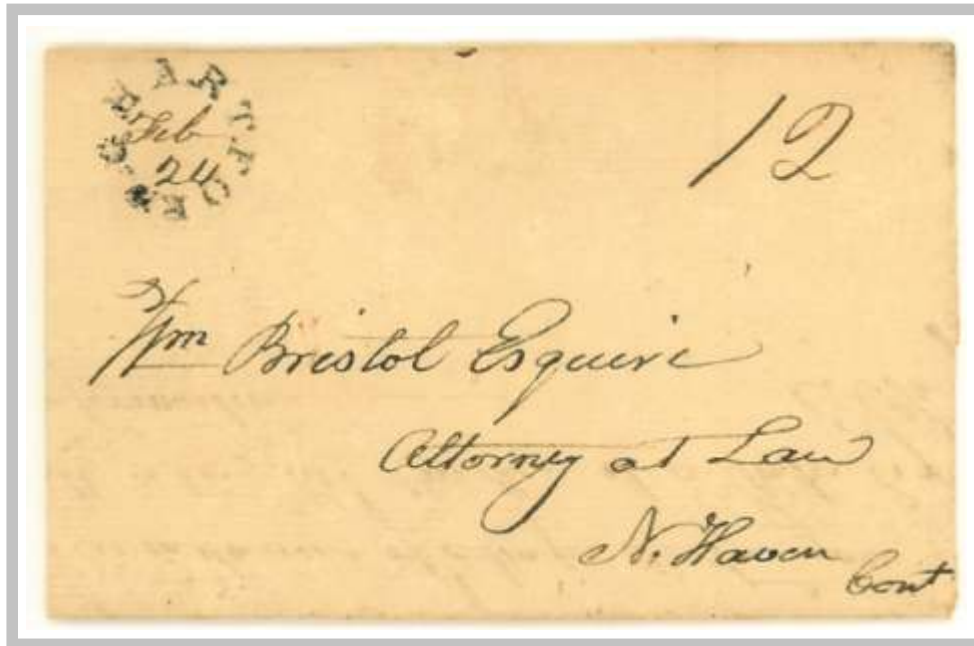 HARTFORD
Feb
24
12
Wm Bristol Esquire
Attorney at Law
N. Haven
Cont